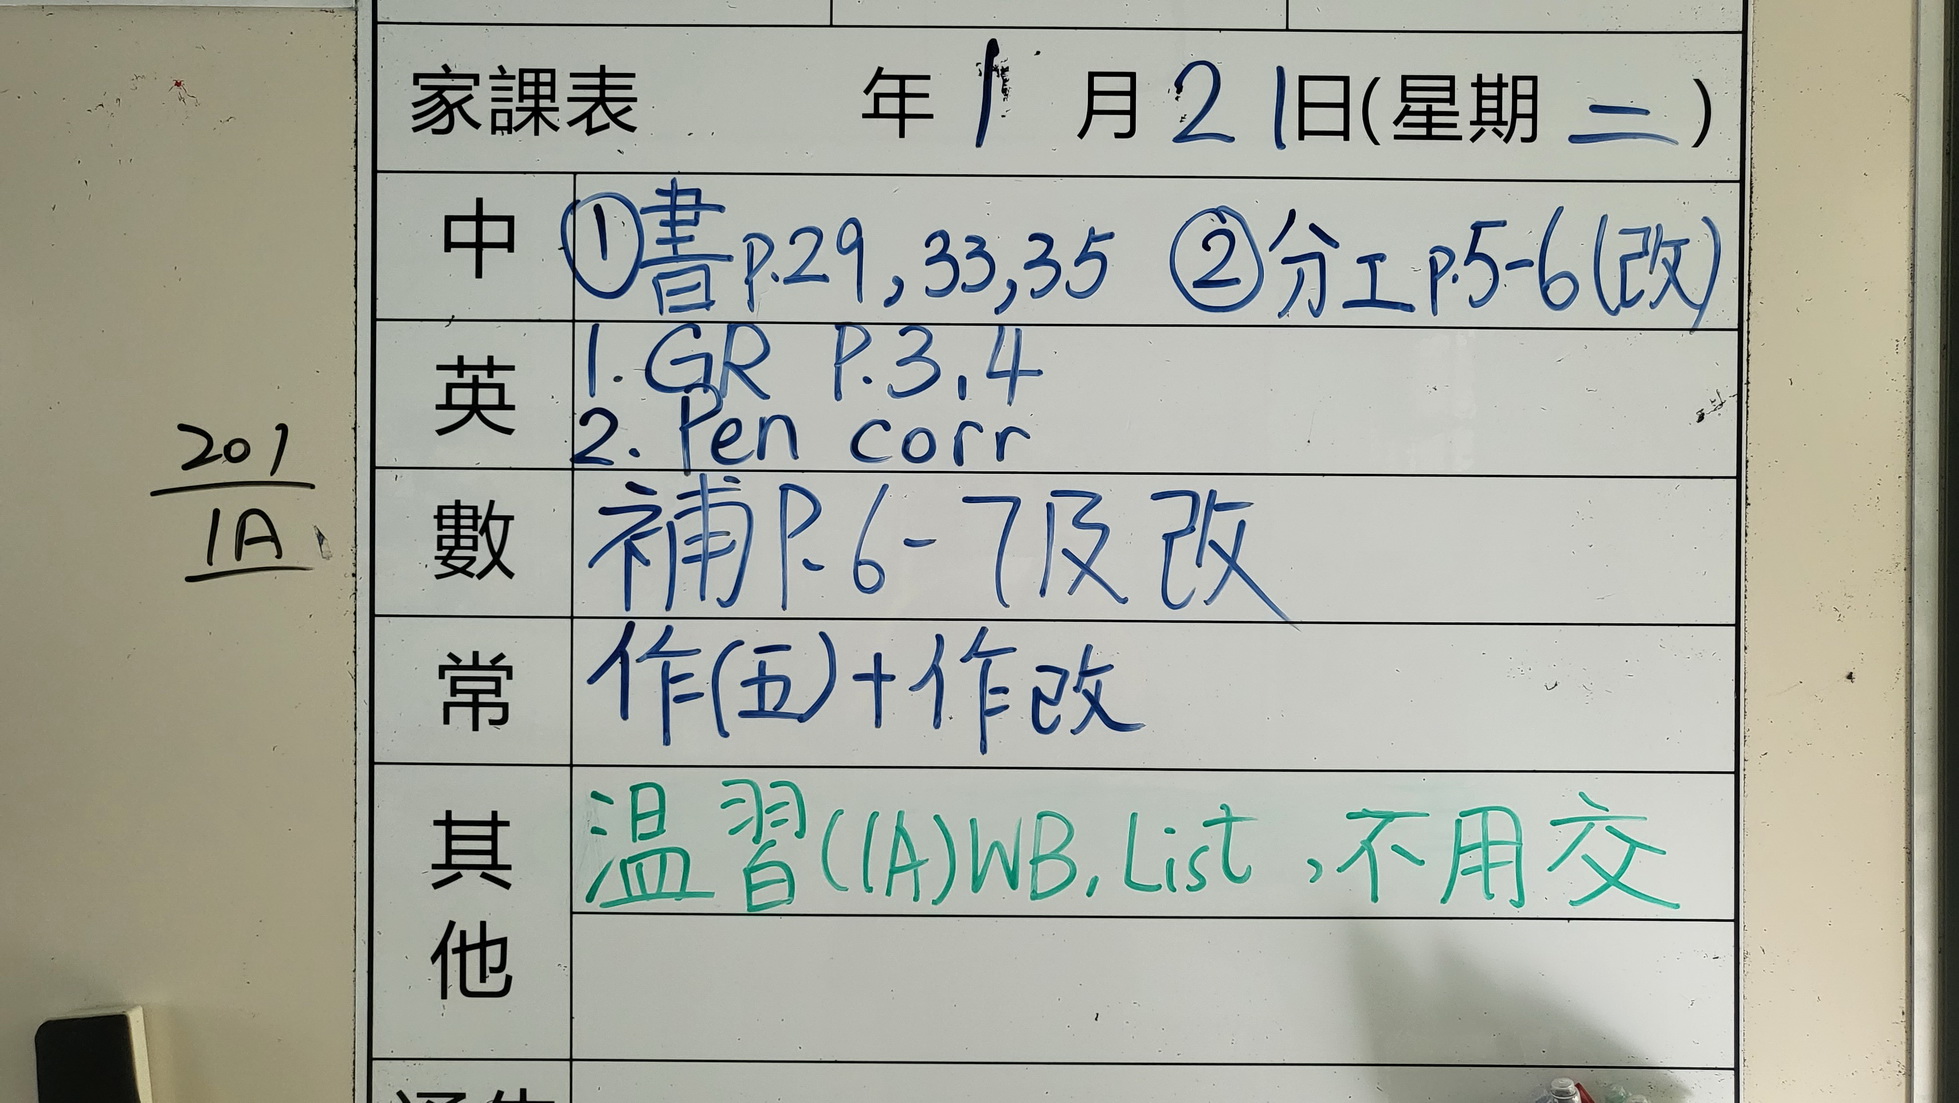 家課表 年 1 月 21 日(星期 二 )
中 ①書p.29,33,35 ②分工p.5-6(改)
英 1. GR P.3,4
2. Pen corr
數 補P.6-7及改
常 作(五)+作改
其他 温習(1A)WB, List,不用交
201
1A